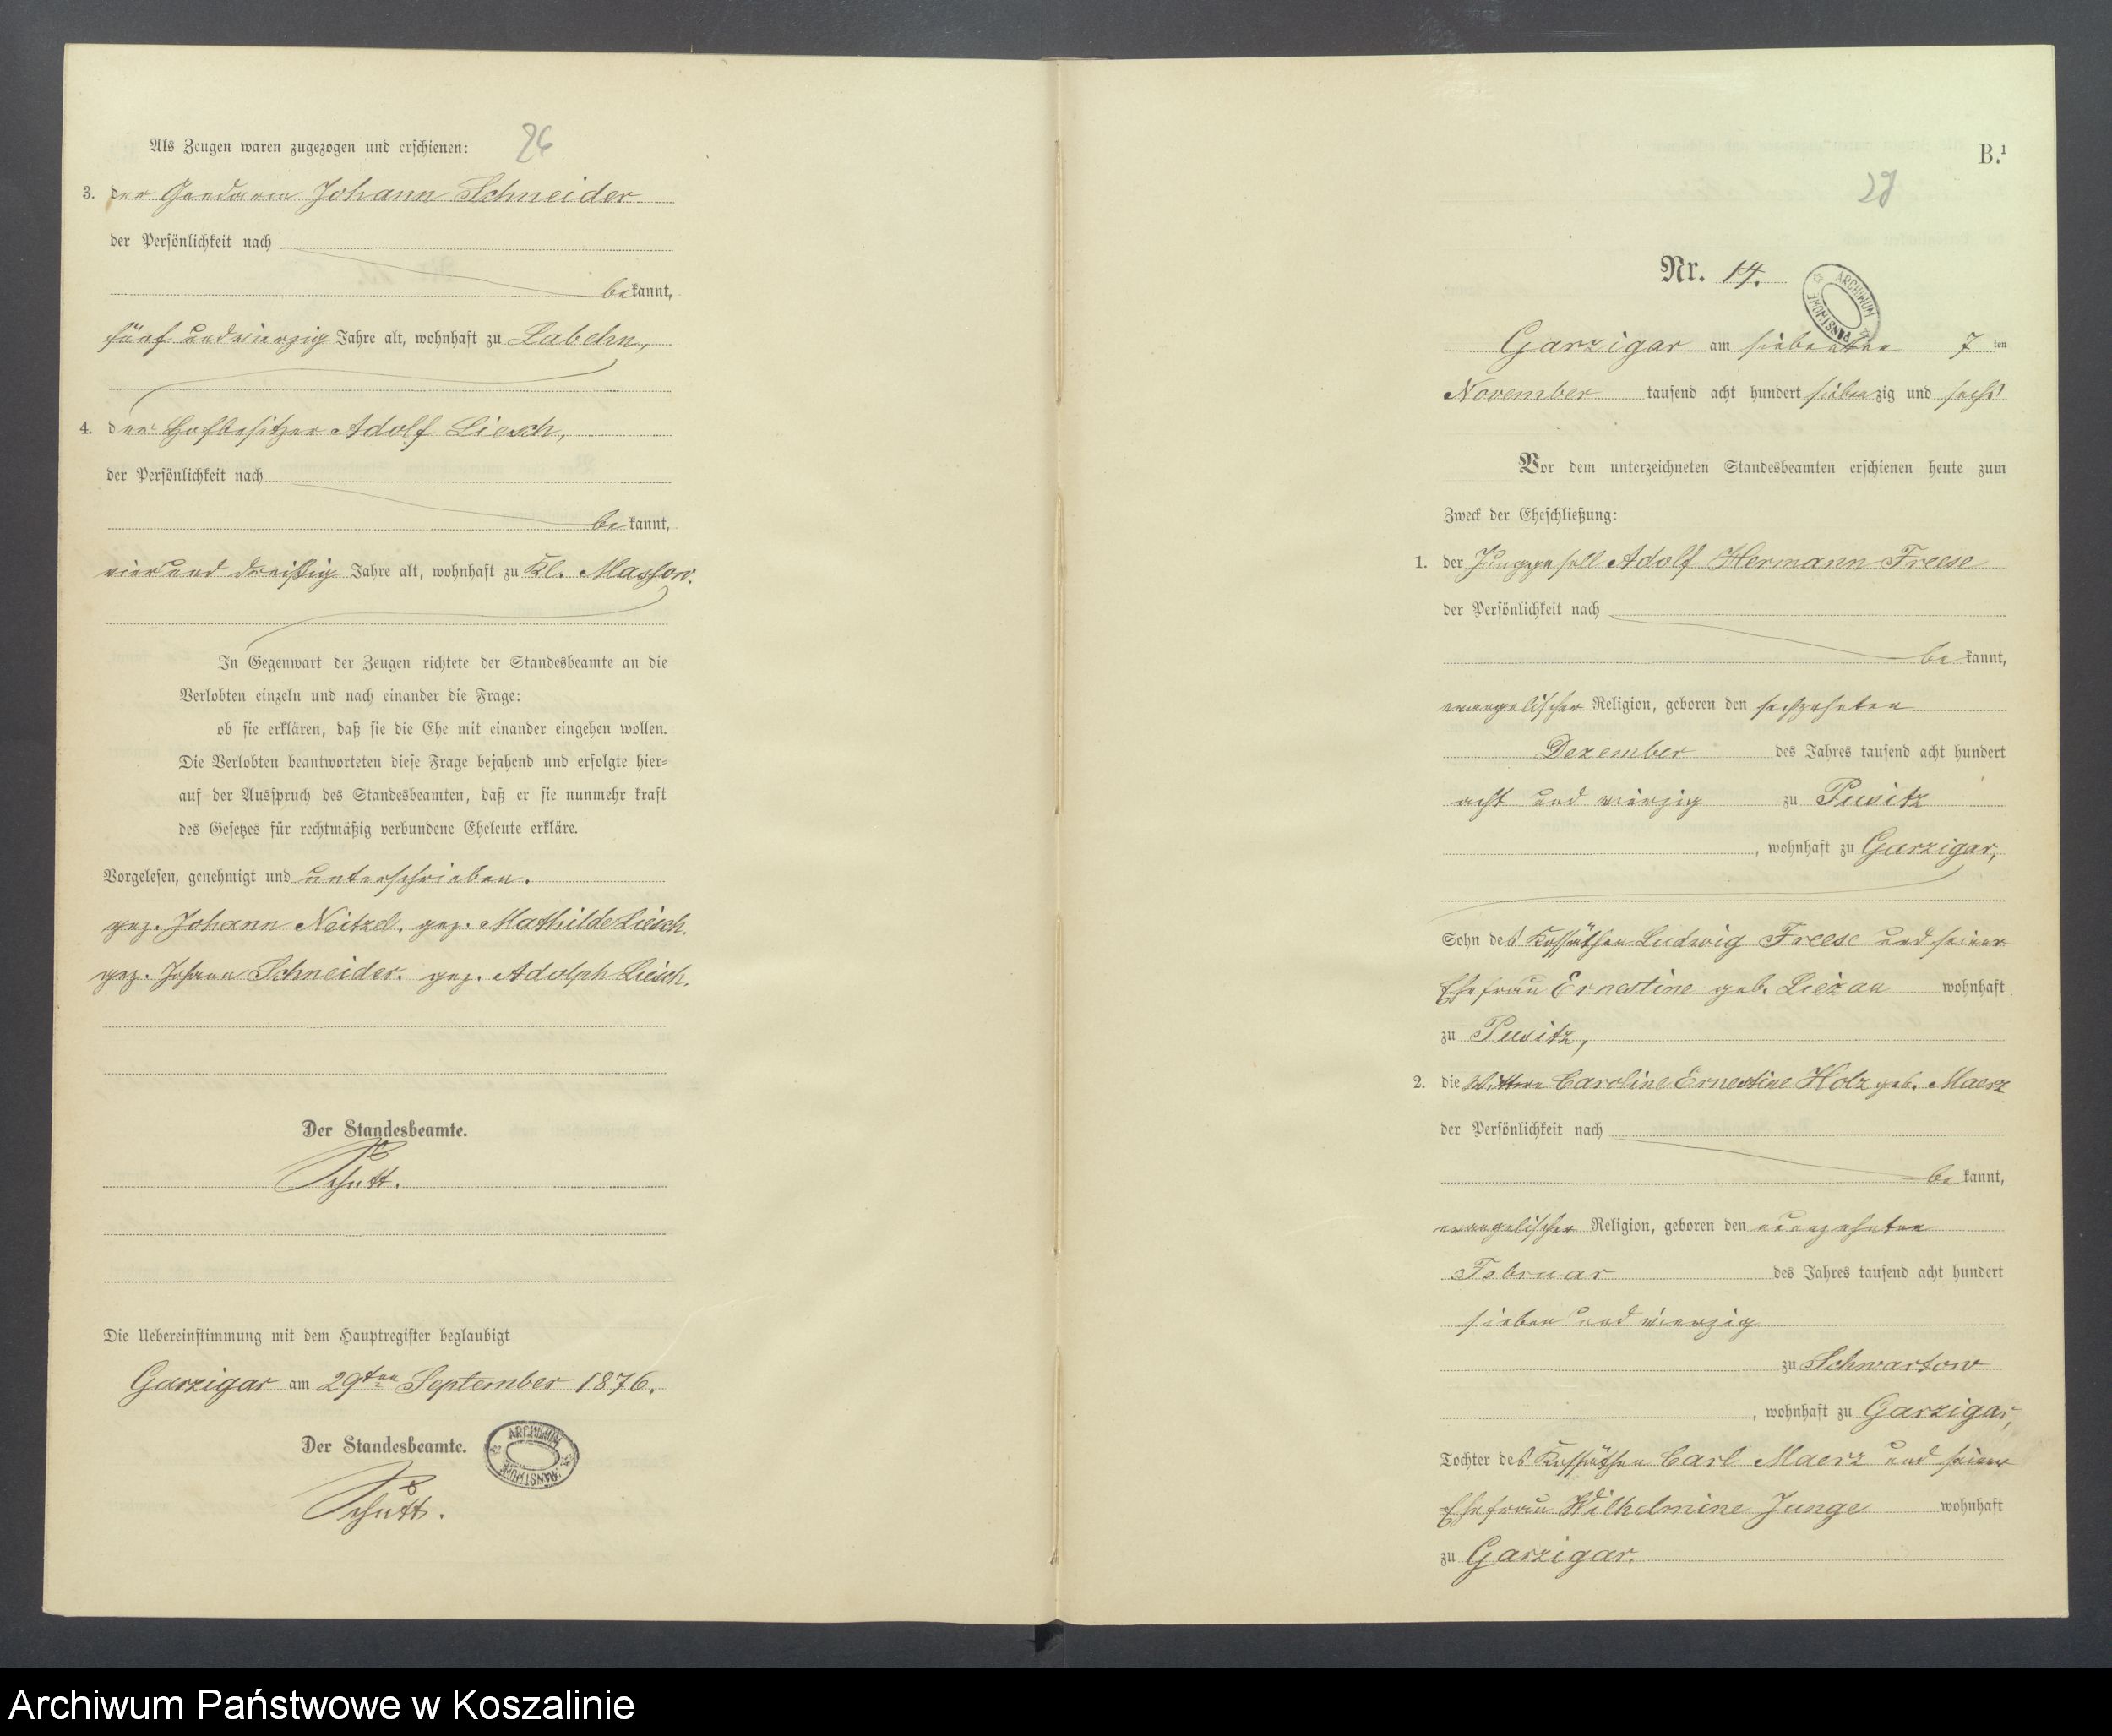 26
Als Zeugen waren zugezogen und erschienen:
3. der Gendarm Johann Schneider
der Persönlichkeit nach
bekannt,
fünf und vierzig Jahre alt, wohnhaft zu Labehn,
4. der Hofbesitzer Adolf Liesch,
der Persönlichkeit nach
bekannt,
vier und dreißig Jahre alt, wohnhaft zu Kl. Massow.
In Gegenwart der Zeugen richtete der Standesbeamte an die
Verlobten einzeln und nach einander die Frage:
ob sie erklären, daß sie die Ehe mit einander eingehen wollen.
Die Verlobten beantworteten diese Frage bejahend und erfolgte hier-
auf der Ausspruch des Standesbeamten, daß er sie nunmehr kraft
des Gesetzes für rechtmäßig verbundene Eheleute erkläre.
Vorgelesen, genehmigt und unterschrieben.
gez. Johann Neitzel. gez. Mathilde Liesch.
gez. Johann Schneider. gez. Adolph Liesch.
Der Standesbeamte.
Schutt.
Die Uebereinstimmung mit dem Hauptregister beglaubigt
Garzigar am 29ten September 1876.
Der Standesbeamte.
ARCHIWUM PAŃSTWOWE
Schutt.
B.1
Nr. 14.
ARCHIWUM PAŃSTWOWE
Garzigar am siebenten 7 ten
November tausend acht hundert siebenzig und sechs
Vor dem unterzeichneten Standesbeamten erschienen heute zum
Zweck der Eheschließung:
1. der Junggesell Adolf Hermann Freese
der Persönlichkeit nach
bekannt,
evangelischer Religion, geboren den sechzehnten
Dezember des Jahres tausend acht hundert
acht und vierzig zu Pusitz
, wohnhaft zu Garzigar,
Sohn des Kossäthen Ludwig Freese und seiner
Ehefrau Ernestine geb. Liezau wohnhaft
zu Pusitz,
2. die Wittwe Caroline Ernestine Holz geb. Maerz
der Persönlichkeit nach
bekannt,
evangelischer Religion, geboren den neunzehnten
Februar des Jahres tausend acht hundert
sieben und vierzig
zu Schwartow
, wohnhaft zu Garzigar,
Tochter des Kossäthen Carl Maerz und seiner
Ehefrau Wilhelmine Junge wohnhaft
zu Garzigar.
Archiwum Państwowe w Koszalinie